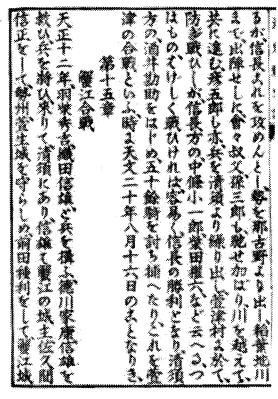 るが信長これを攻めんとし　兵を那古野より出し、稲葉地川
まで出陣せしに會々叔父孫三郎も馳せ加はり川を越えて、
共に進む彦五郎も亦兵を清須より繰り出し萱津村に於て
防ぎ戰ひしが信長方の中條小一郎柴田權六など云へる、つ
はものはげしく戰ひければ容易く信長の勝利となり、清須
方の酒井勘助をはじめ、五十餘騎を討ち捕へたり、これを萱
津の合戰といふ、時は天文二十年八月十六日のことなりき、
第十五章
蟹江合戰
天正十二年、羽柴秀吉、織田信雄と兵を構ふ、徳川家康信雄を
救ひ兵を將ひ來りて清須にあり、信雄も蟹江の城主佐久間
信正をして勢州萱生城を守らしめ、前田種利をして蟹江城